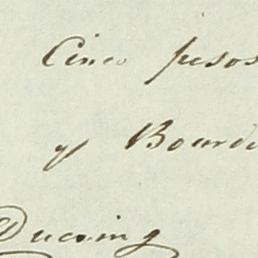 Cinco pesos
y Bourdi
Ducoing